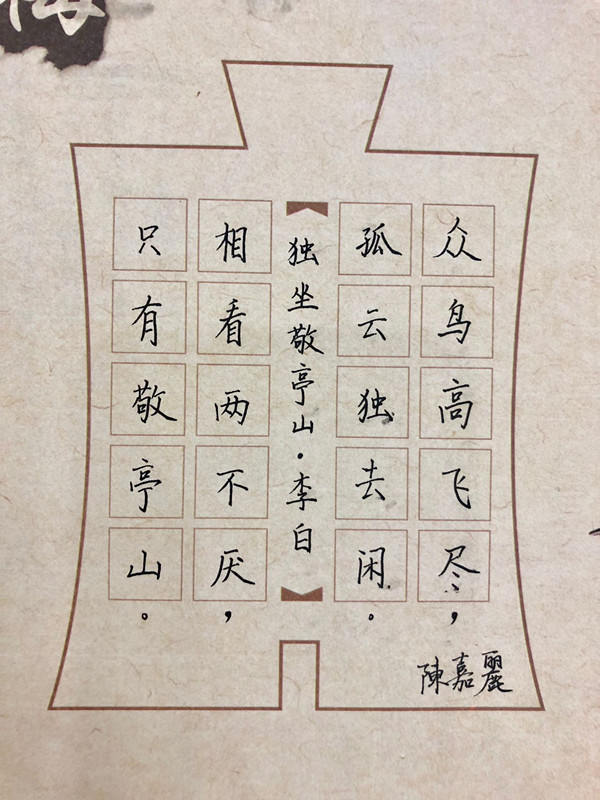 众鸟高飞尽，
孤云独去闲。
独坐敬亭山·李白
相看两不厌，
只有敬亭山。
陳嘉麗